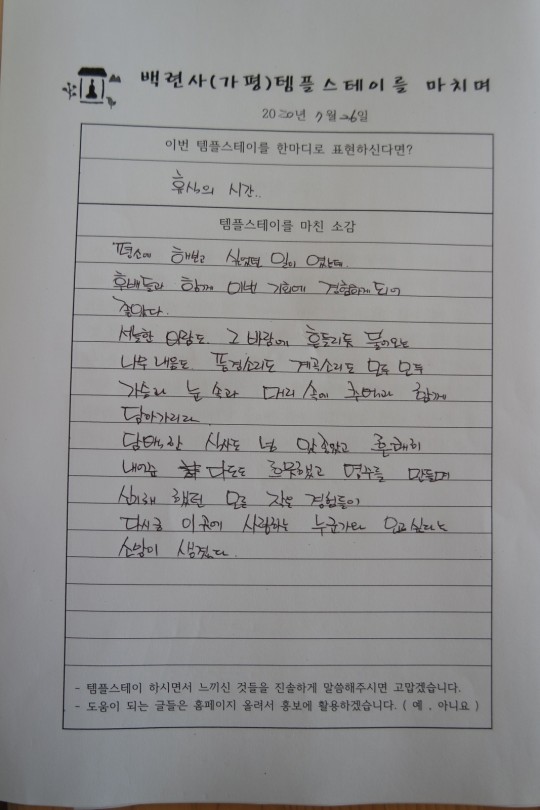 백련사(가평)템플스테이를 마치며
2020년 7월 26일
이번 템플스테이를 한마디로 표현하신다면?
휴식의 시간..
템플스테이를 마친 소감
평소에 해보고 싶었던 일이 였는데
후배들과 함께 이번 기회에 경험하게 되어
좋았다.
서늘한 바람도 그 바람에 흔들리듯 불어오는
나무 내음도 풍경소리도 계곡소리도 모두 모두
가슴과 눈 속과 머리 속에 추억과 함께
담아가리라
담백한 식사도 넘 맛있었고 흔쾌히
내어준 다도도 흐뭇했고 염주를 만들며
신기해 했던 모든 작은 경험들이
다시금 이곳에 사랑하는 누군가와 오고싶다는
소망이 생겼다.
- 템플스테이 하시면서 느끼신 것들을 진솔하게 말씀해주시면 고맙겠습니다.
- 도움이 되는 글들은 홈페이지 올려서 홍보에 활용하겠습니다. ( 예 , 아니요 )